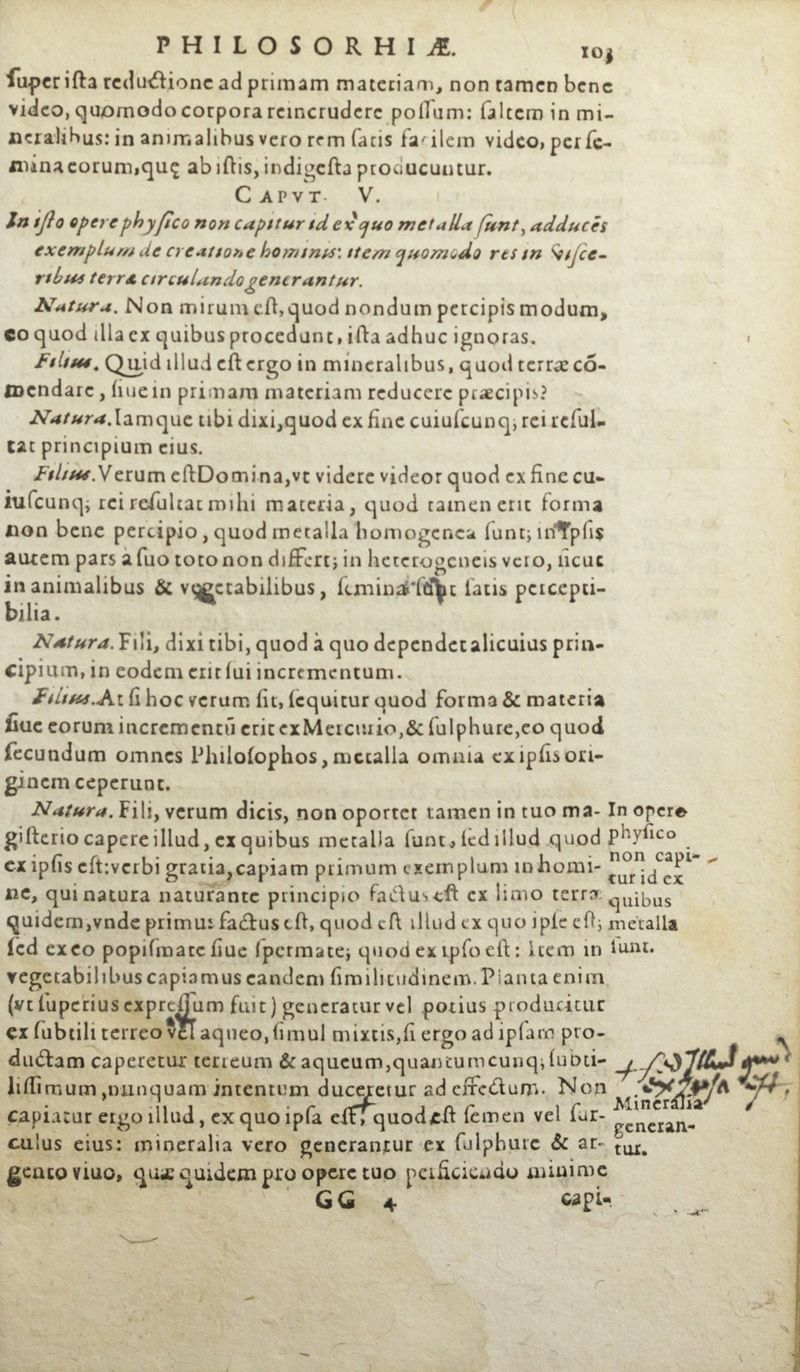 PHILOSORHIÆ. 103
ſuper iſta reductione ad primam materiam, non tamen bene
video, quomodo corpora reincrudere poſſum: ſaltem in mi-
neralibus: in animalibus vero rem ſatis facilem video, per ſe-
mina eorum, quę ab iſtis, indigeſta producuntur.
CAPVT V.
In iſto opere phyſico non capitur id ex quo metalla ſunt, adducẽs
exemplum de creatione hominis: item quomodo res in viſce-
ribus terræ circulando generantur.
Natura. Non mirum eſt, quod nondum percipis modum,
eo quod illa ex quibus procedunt, iſta adhuc ignoras.
Filius. Quid illud eſt ergo in mineralibus, quod terræ cõ-
mendare, ſiue in primam materiam reducere præcipis?
Natura. Iamque tibi dixi, quod ex fine cuiuſcunq; rei reſul-
tat principium eius.
Filius. Verum eſt Domina, vt videre videor quod ex fine cu-
iuſcunq; rei reſultat mihi materia, quod tamen erit forma
non bene percipio, quod metalla homogenea ſunt; in ipſis
autem pars a ſuo toto non differt; in heterogeneis vero, ſicut
in animalibus & vegetabilibus, ſemina ſunt ſatis percepti-
bilia.
Natura. Fili, dixi tibi, quod à quo dependet alicuius prin-
cipium, in eodem erit ſui incrementum.
Filius. At ſi hoc verum ſit, ſequitur quod forma & materia
ſiue eorum incrementũ erit ex Mercurio, & ſulphure, eo quod
ſecundum omnes Philoſophos, metalla omnia ex ipſis ori-
ginem ceperunt.
Natura. Fili, verum dicis, non oportet tamen in tuo ma-
giſterio capere illud, ex quibus metalla ſunt, ſed illud quod
ex ipſis eſt: verbi gratia, capiam primum exemplum in homi-
ne, qui natura naturante principio factus eſt ex limo terræ
quidem, vnde primus factus eſt, quod eſt illud ex quo ipſe eſt;
ſed ex eo popiſmate ſiue ſpermate; quod ex ipſo eſt: Item in
vegetabilibus capiamus eandem ſimilitudinem. Planta enim
(vt ſuperius expreſſum fuit) generatur vel potius producitur
ex ſubtili terreo vel aqueo, ſimul mixtis, ſi ergo ad ipſam pro-
ductam caperetur terreum & aqueum, quantumcunq; ſubti-
liſſimum, nunquam intentum duceretur ad effectum. Non
capiatur ergo illud, ex quo ipſa eſt, quod eſt ſemen vel ſur-
culus eius: mineralia vero generantur ex ſulphure & ar-
gento viuo, quæ quidem pro opere tuo perficiendo minime
GG 4 capi-
In opere
phyſico
non capi-
tur id ex
quibus
metalla
ſunt.
Mineralia
generan-
tur.